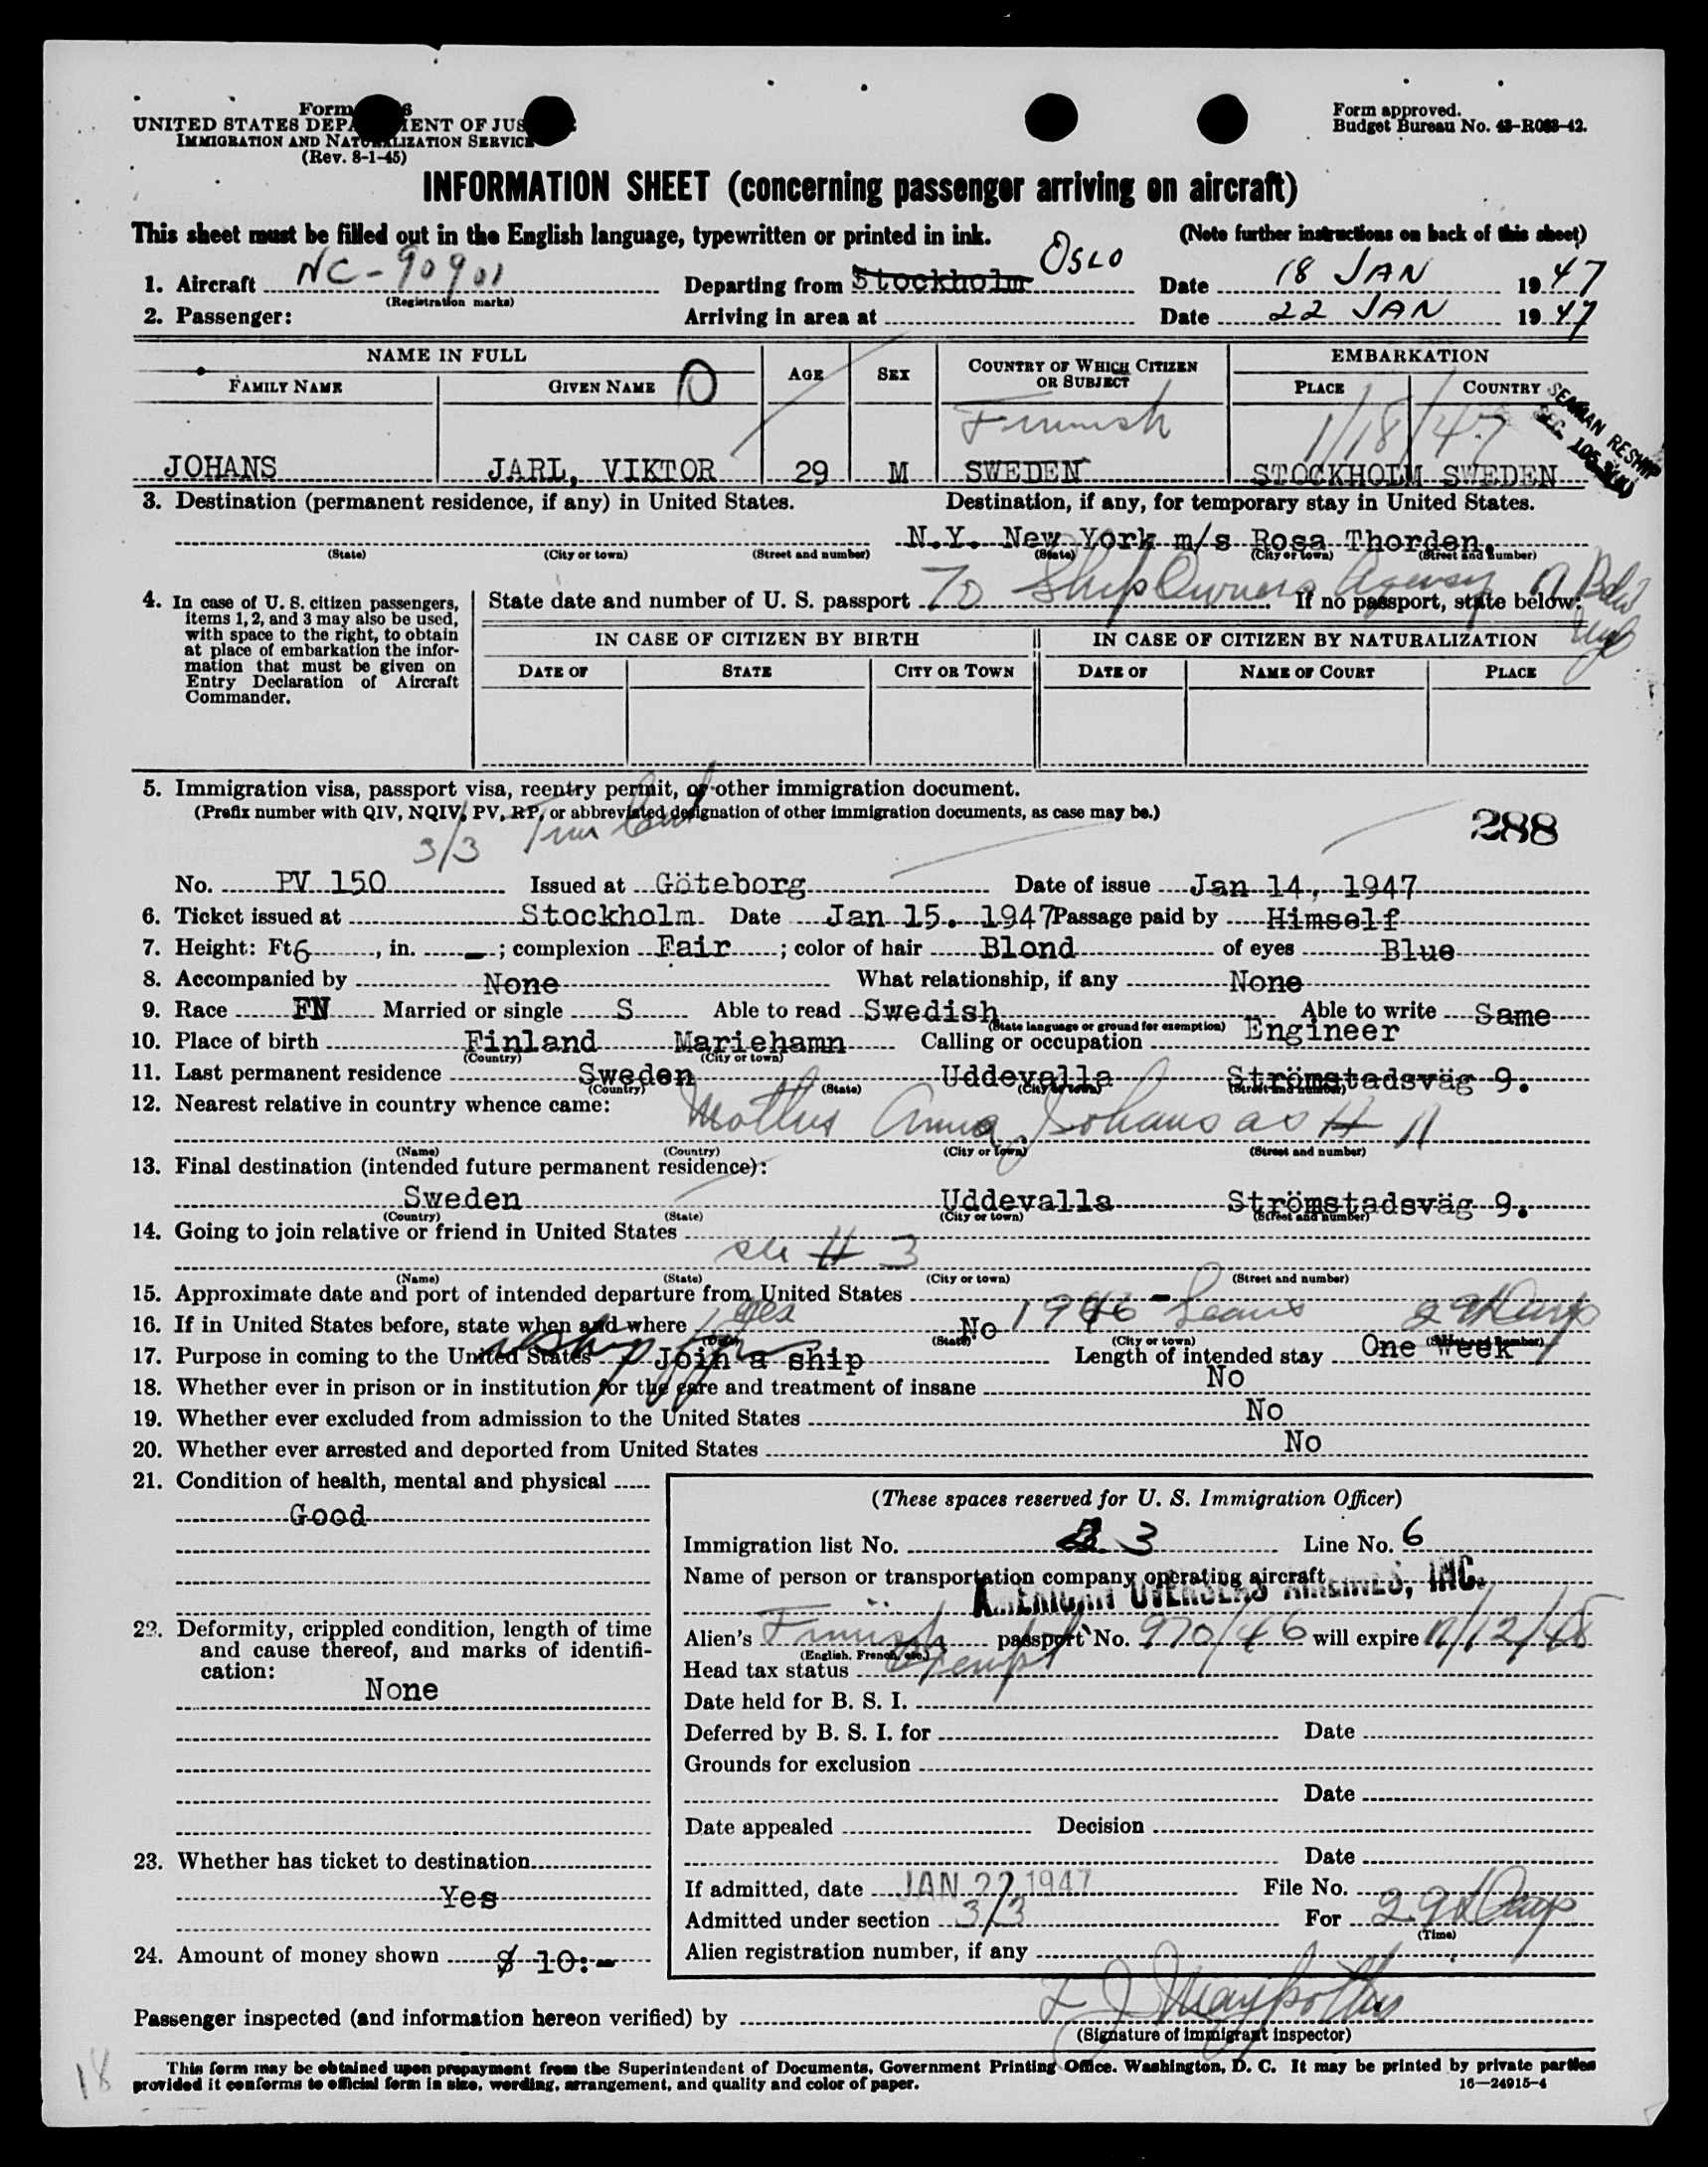 Form
UNITED STATES DEPARTMENT OF JUSTICE
IMMIGRATION AND NATURALIZATION SERVICE
(Rev. 8-1-45)
Form approved.
Budget Bureau No. 43-R083-42.
INFORMATION SHEET (concerning passenger arriving on aircraft)
This sheet must be filled out in the English language, typewritten or printed in ink. (Note further instructions on back of this sheet)
1. Aircraft NC-90901 Departing from Stockholm OSLO Date 18 JAN 1947
(Registration marks)
2. Passenger: Arriving in area at Date 22 JAN 1947
NAME IN FULL AGE SEX COUNTRY OF WHICH CITIZEN OR SUBJECT EMBARKATION
FAMILY NAME GIVEN NAME PLACE COUNTRY
Finnish 1/18/47 SEAMAN RESHIP
JOHANS JARL, VIKTOR 29 M SWEDEN STOCKHOLM SWEDEN
3. Destination (permanent residence, if any) in United States. Destination, if any, for temporary stay in United States.
N.Y. New York m/s Rosa Thorden.
(State) (City or town) (Street and number) (State) (City or town) (Street and number)
To Ship Owners Agency
4. In case of U. S. citizen passengers, items 1, 2, and 3 may also be used, with space to the right, to obtain at place of embarkation the information that must be given on Entry Declaration of Aircraft Commander.
State date and number of U. S. passport If no passport, state below:
IN CASE OF CITIZEN BY BIRTH IN CASE OF CITIZEN BY NATURALIZATION
DATE OF STATE CITY OR TOWN DATE OF NAME OF COURT PLACE
5. Immigration visa, passport visa, reentry permit, or other immigration document.
(Prefix number with QIV, NQIV, PV, RP, or abbreviated designation of other immigration documents, as case may be.)
3/3 288
No. PV 150 Issued at Göteborg Date of issue Jan 14, 1947
6. Ticket issued at Stockholm Date Jan 15. 1947 Passage paid by Himself
7. Height: Ft 6, in. -; complexion Fair; color of hair Blond of eyes Blue
8. Accompanied by None What relationship, if any None
9. Race FN Married or single S Able to read Swedish Able to write Same
(State language or ground for exemption)
10. Place of birth Finland Mariehamn Calling or occupation Engineer
(Country) (City or town)
11. Last permanent residence Sweden Uddevalla Strömstadsväg 9.
(Country) (State) (City or town) (Street and number)
12. Nearest relative in country whence came:
Mother Anna Johans as # 11
(Name) (Country) (City or town) (Street and number)
13. Final destination (intended future permanent residence):
Sweden Uddevalla Strömstadsväg 9.
(Country) (State) (City or town) (Street and number)
14. Going to join relative or friend in United States
see # 3
(Name) (State) (City or town) (Street and number)
15. Approximate date and port of intended departure from United States
16. If in United States before, state when and where yes No 1946 - 29 Days
(Date) (State) (City or town) (Street and number)
17. Purpose in coming to the United States Join a ship Length of intended stay One Week
18. Whether ever in prison or in institution for the care and treatment of insane No
19. Whether ever excluded from admission to the United States No
20. Whether ever arrested and deported from United States No
21. Condition of health, mental and physical
Good
22. Deformity, crippled condition, length of time and cause thereof, and marks of identification:
None
23. Whether has ticket to destination
Yes
24. Amount of money shown $ 10:-
(These spaces reserved for U. S. Immigration Officer)
Immigration list No. 3 Line No. 6
Name of person or transportation company operating aircraft
AMERICAN OVERSEAS AIRLINES, INC.
Alien's Finnish passport No. 970/46 will expire 11/12/48
(English, French, etc.)
Head tax status Exempt
Date held for B. S. I.
Deferred by B. S. I. for Date
Grounds for exclusion
Date
Date appealed Decision
Date
If admitted, date JAN 22 1947 File No.
Admitted under section 3/3 For 29 Days
(Time)
Alien registration number, if any
Passenger inspected (and information hereon verified) by
(Signature of immigrant inspector)
18
This form may be obtained upon prepayment from the Superintendent of Documents, Government Printing Office, Washington, D. C. It may be printed by private parties
provided it conforms to official form in size, wording, arrangement, and quality and color of paper. 16—24915-4